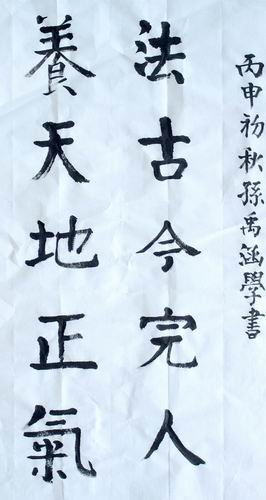 養天地正氣
法古今完人
丙申初秋孫禹涵學書